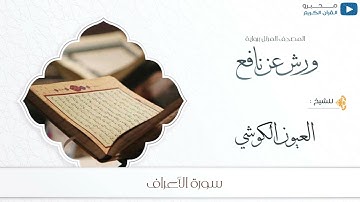 محبرو
القرآن الكريم
المصحف المرتل برواية
ورش عن نافع
للشيخ :
العيون الكوشي
سورة الأعراف